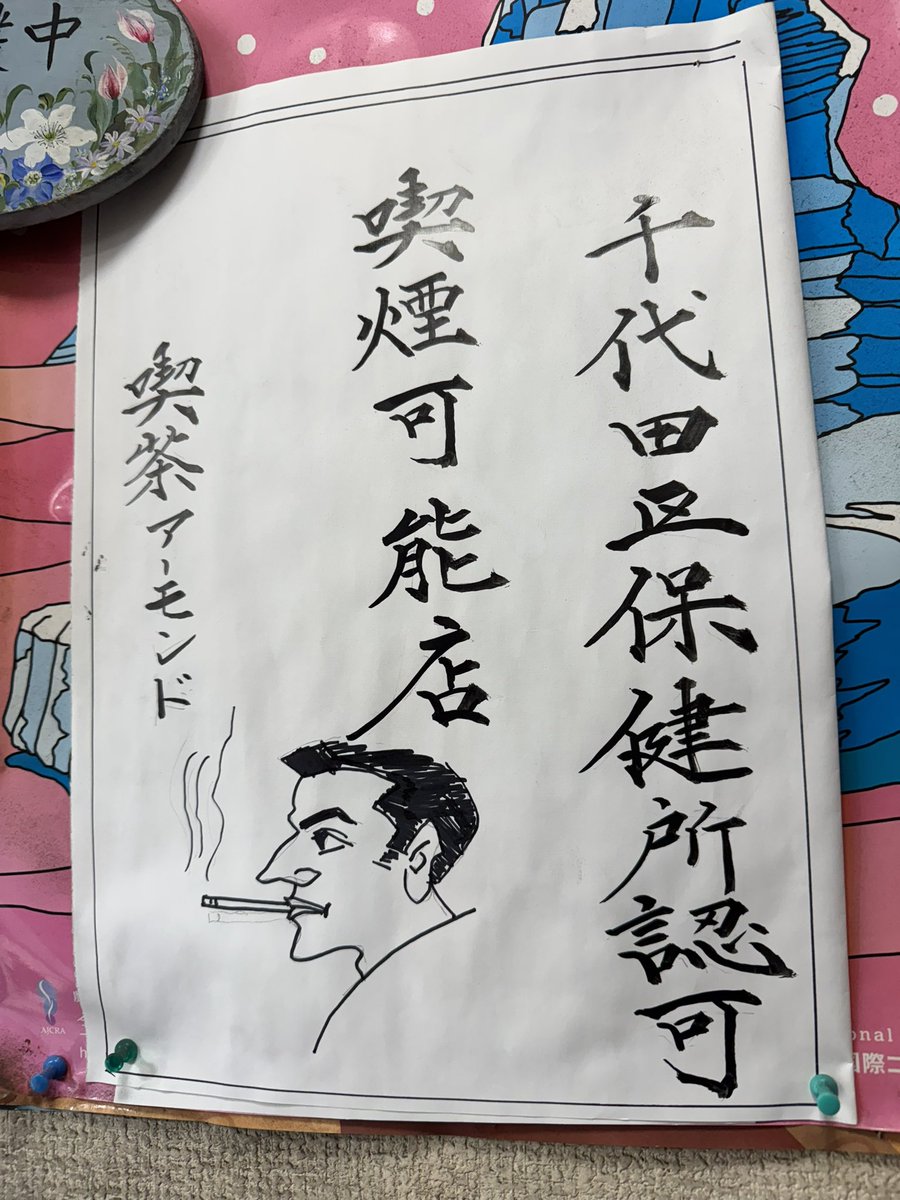 千代田区保健所認可
喫煙可能店
喫茶アーモンド
中
AJCRA
onal
国際コ